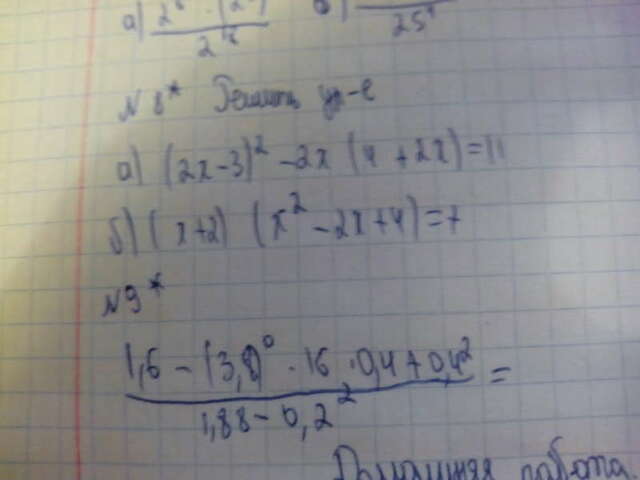 а)
2
25⁹
N 8* Решить ур-е
а) (2x-3)² -2x (4 +2x)=11
б) ( x+2) (x² -2x+4)=
N9*
1,6 - (3,8)⁰ · 16 · 0,4 + 0,4²
1,88 - 0,2² =
Домашняя работа.